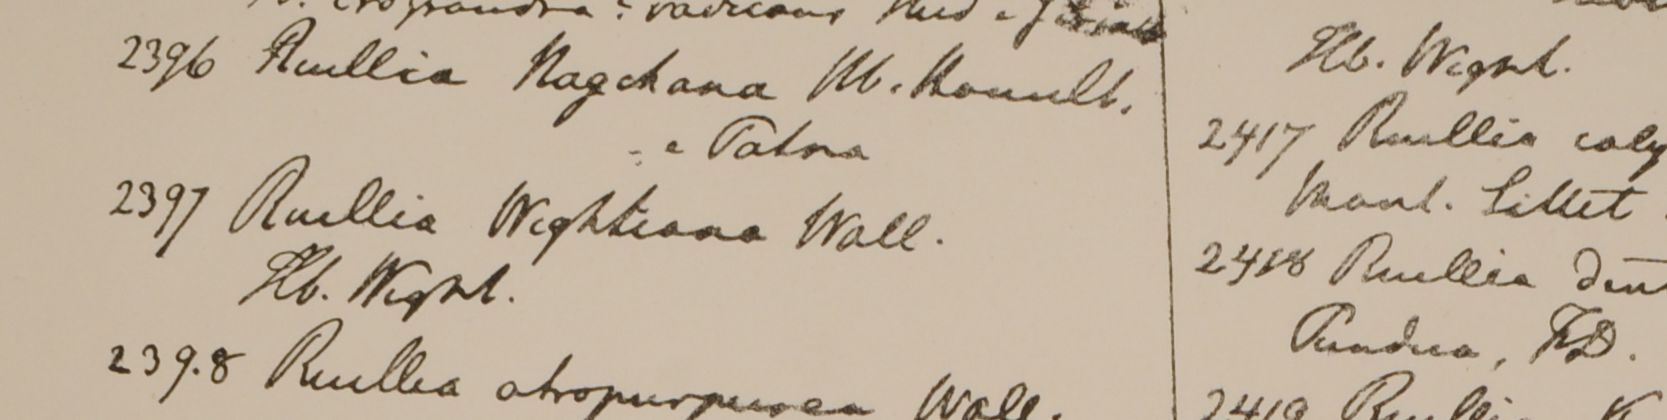 radicans
2396 Ruellia Nagchana Hb. Hamilt.
e Patna
2397 Ruellia Wightiana Wall.
Hb. Wight.
2398 Ruellia atropurpurea Wall.
Hb. Wight.
2417 Ruellia caly
Mont. Sillet
2418 Ruellia den
Pundua, F.D.
2419 Ruellia